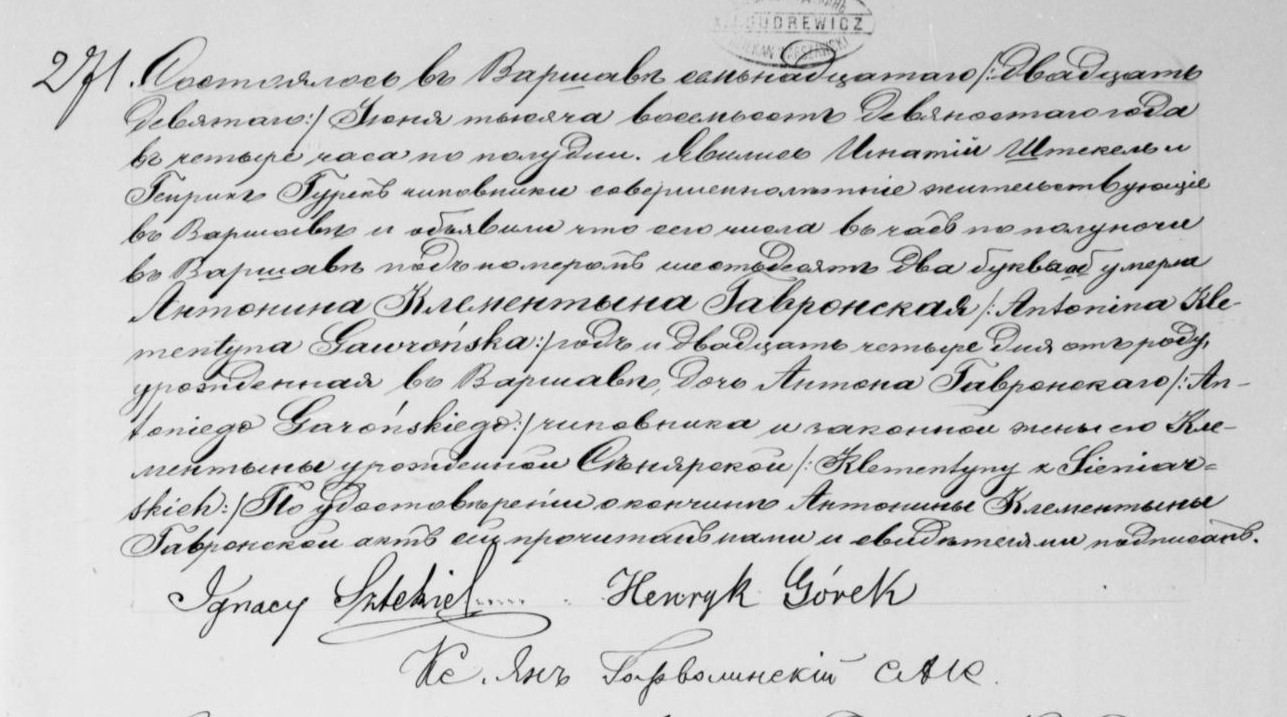 UDREWICZ
271. Состоялось въ Варшавѣ семьнадцатаго /: двадцать
девятаго :/ Іюня тысяча восемьсотъ девяностаго года
въ четыре часа по полудни. Явились Игнатій Штекель и
Генрикъ Гурекъ чиновники совершеннолѣтніе жительствующіе
въ Варшавѣ и объявили что сего числа въ часъ по полуночи
въ Варшавѣ подъ номеромъ шестьдесятъ два буква умерла
Антонина Клементына Гавронская /: Antonina Kle-
mentyna Gawrońska :/ годъ и двадцать четыре дня отъ роду,
урожденная въ Варшавѣ, дочь Антона Гавронскаго /: An-
toniego Garońskiego :/ чиновника и законной жены его Кле-
ментыны урожденной Сѣнярской /: Klementyny z Sieniar=
skich :/ По удостовѣреніи о кончинѣ Антонины Клементыны
Гавронской актъ сей прочитавъ нами и свидѣтелями подписанъ.
Ignacy Sztekiel Henryk Górek
Кс. Янъ Гарволинскій САК.